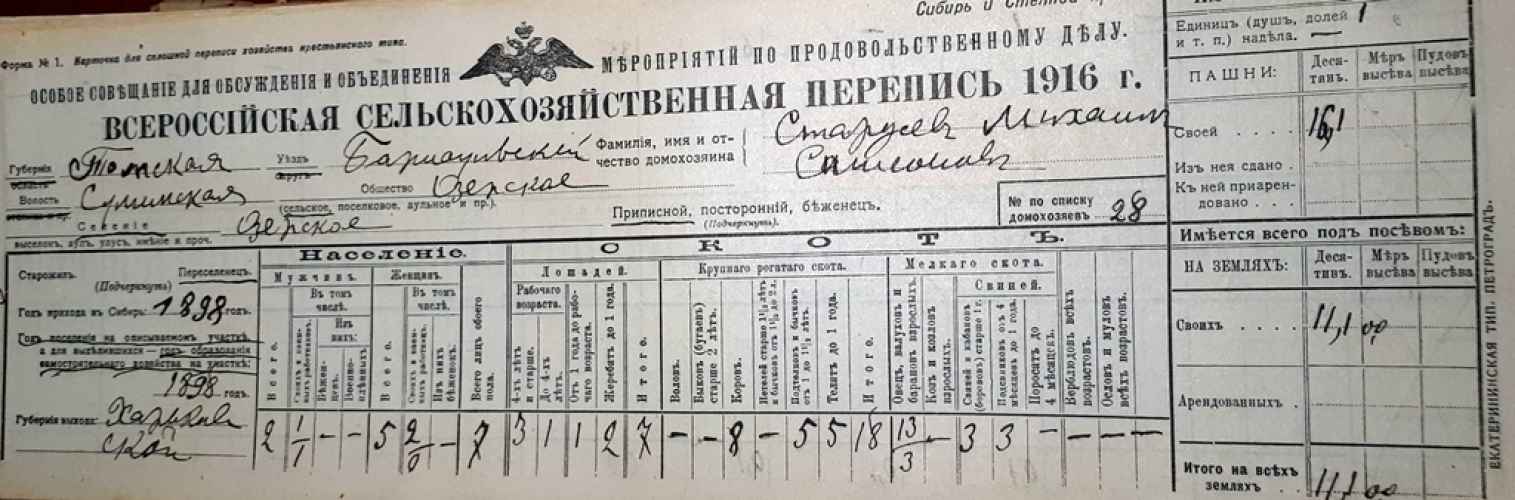 Сибирь и Степной
Форма № 1. Карточка для сплошной переписи хозяйства крестьянскаго типа.
ОСОБОЕ СОВѢЩАНІЕ ДЛЯ ОБСУЖДЕНІЯ И ОБЪЕДИНЕНІЯ МѢРОПРІЯТІЙ ПО ПРОДОВОЛЬСТВЕННОМУ ДѢЛУ.
ВСЕРОССІЙСКАЯ СЕЛЬСКОХОЗЯЙСТВЕННАЯ ПЕРЕПИСЬ 1916 г.
Губернія Томская Уѣздъ Барнаульский Фамилія, имя и от- Старусев Михаил
область. Округъ. чество домохозяина Самсонов
Волость Сузунская Общество Озерское
(сельское, поселковое, аульное и пр.).
Селеніе Озерское Приписной, посторонній, бѣженецъ. № по списку
выселок, аул, улус, имѣніе и проч. (Подчеркнуть). домохозяевъ 28
Старожилъ. Переселенецъ.
(Подчеркнуть)
Годъ прихода въ Сибирь: 1898 годъ.
Годъ поселенія на описываемомъ участкѣ,
а для выдѣлившихся — годъ образованія
самостоятельнаго хозяйства на участкѣ:
1898 годъ.
Губернія выхода: Харьков
ской
Населеніе.
Мужчинъ. Женщинъ.
Въ томъ числѣ. Въ томъ числѣ.
Изъ нихъ:
Всего.
Своихъ в наем-
ныхъ работниковъ.
Бѣжен-
цевъ.
Военно-
плѣнныхъ
Всего.
Своихъ в наем-
ныхъ работник.
Изъ нихъ
бѣженокъ.
Всего лицъ обоего
пола.
СКОТЪ.
Лошадей. Крупнаго рогатаго скота. Мелкаго скота.
Рабочаго
возраста.
4-хъ лѣтъ
и старше.
До 4-хъ
лѣтъ.
Отъ 1 года до рабо-
чаго возраста.
Жеребятъ до 1 года.
Итого.
Воловъ.
Быковъ (бугаевъ)
старше 2 лѣтъ.
Коровъ.
Нетелей старше 1½ лѣтъ
и бычковъ отъ 1½ до 2 л.
Подтелковъ и бычковъ
отъ 1 до 1½ лѣтъ.
Телятъ до 1 года.
Итого.
Овецъ, валуховъ и
барановъ взрослыхъ.
Козъ и козловъ
взрослыхъ.
Свиней.
Свиней и кабановъ
(борововъ) старше 1 г.
Подсвинковъ отъ 4
мѣсяцевъ до 1 года.
Поросятъ до
4 мѣсяцев.
Верблюдовъ всѣхъ
возрастовъ.
Ословъ и муловъ
всѣхъ возрастовъ.
2 1/1 – – 5 2/0 – 7 3 1 1 2 7 – – 8 – 5 5 18 13/3 – 3 3 – – –
Единицъ (душъ, долей 1
и т. п.) надѣла. —
ПАШНИ: Деся-
тинъ. Мѣръ
высѣва. Пудовъ
высѣва.
Своей . . . . 16,1
Изъ нея сдано .
Къ ней приарен-
довано . . .
Имѣется всего подъ посѣвомъ:
НА ЗЕМЛЯХЪ: Деся-
тинъ. Мѣръ
высѣва Пудовъ
высѣва
Своихъ . . . . 11,1 00
Арендованныхъ .
Итого на всѣхъ
земляхъ . . 11,1 00
ЕКАТЕРИНИНСКАЯ ТИП. ПЕТРОГРАДЪ.